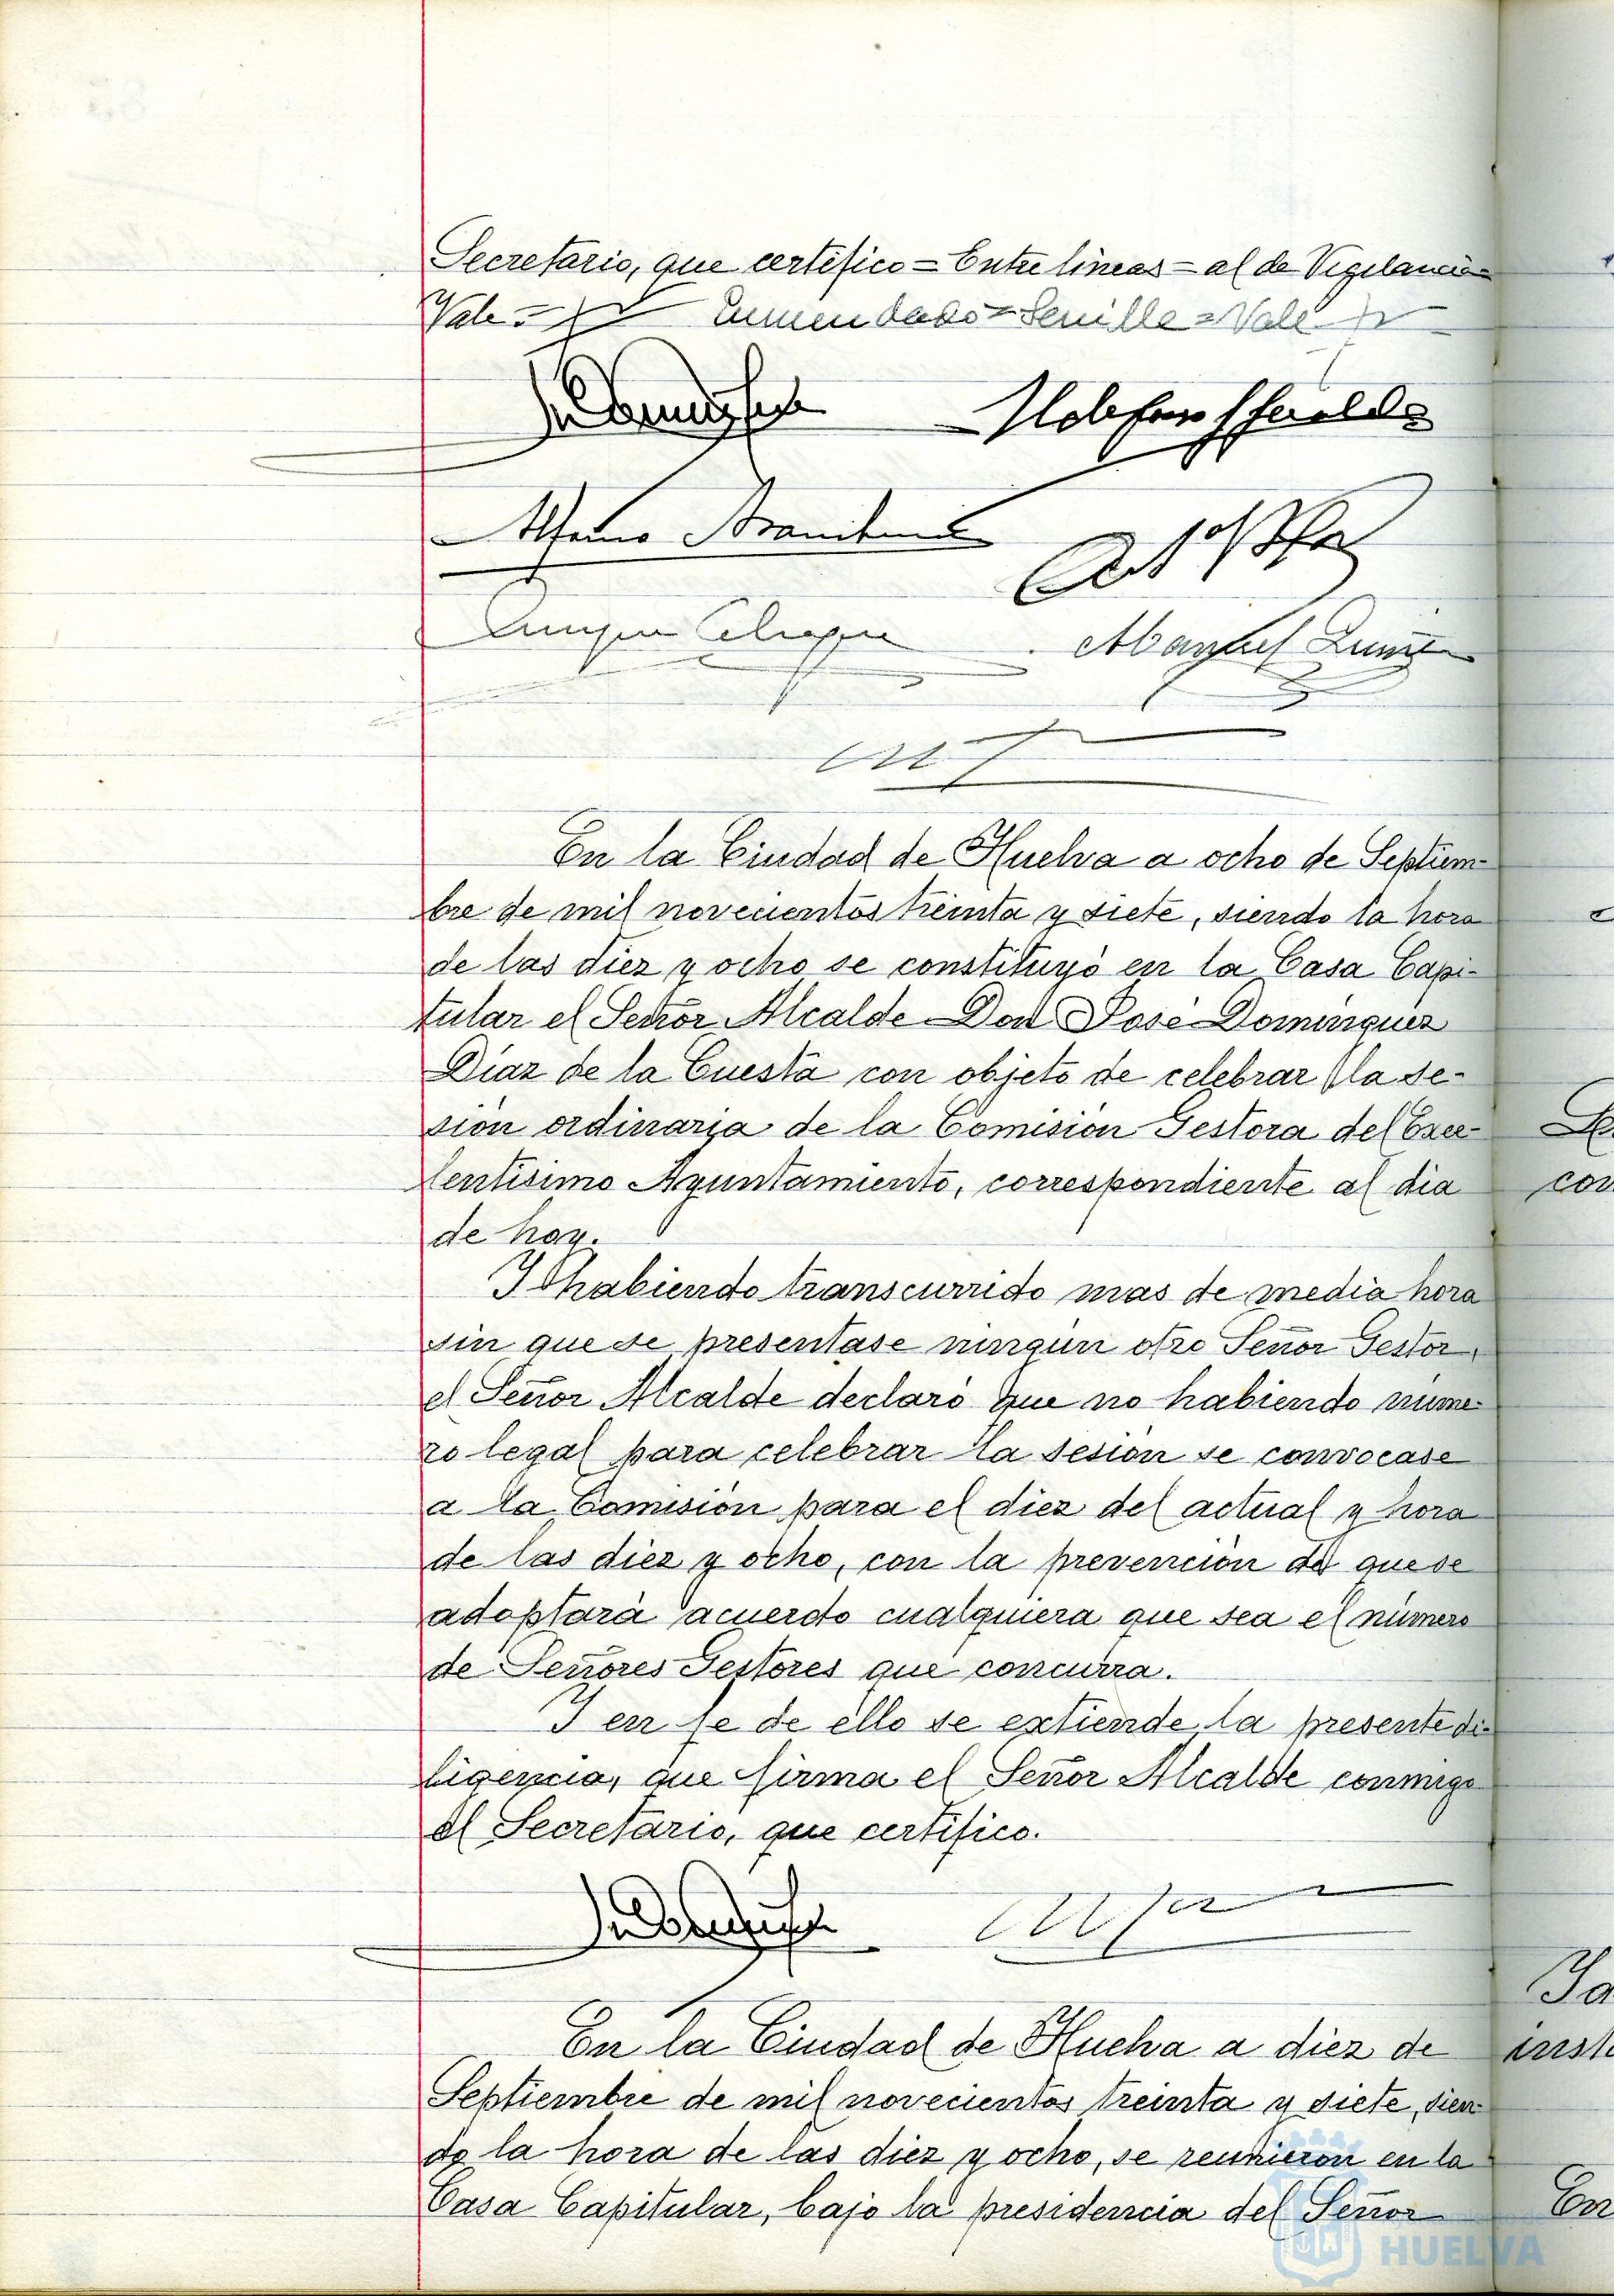 Secretario, que certifico = Entre líneas = al de Vigilancia
Vale = Enmendado = Sevilla = Vale
Manuel
En la Ciudad de Huelva a ocho de Septiem-
bre de mil novecientos treinta y siete, siendo la hora
de las diez y ocho se constituyó en la Casa Capi-
tular el Señor Alcalde Don José Dominguez
Díaz de la Cuesta con objeto de celebrar la se-
sión ordinaria de la Comisión Gestora del Exce-
lentísimo Ayuntamiento, correspondiente al dia
de hoy.
Y habiendo transcurrido mas de media hora
sin que se presentase ningún otro Señor Gestor,
el Señor Alcalde declaró que no habiendo núme-
ro legal para celebrar la sesión se convocase
a la Comisión para el diez del actual y hora
de las diez y ocho, con la prevención de que se
adoptará acuerdo cualquiera que sea el número
de Señores Gestores que concurra.
Y en fe de ello se extiende la presente di-
ligencia, que firma el Señor Alcalde conmigo
el Secretario, que certifico.
En la Ciudad de Huelva a diez de
Septiembre de mil novecientos treinta y siete, sien-
do la hora de las diez y ocho, se reunieron en la
Casa Capitular, bajo la presidencia del Señor
HUELVA